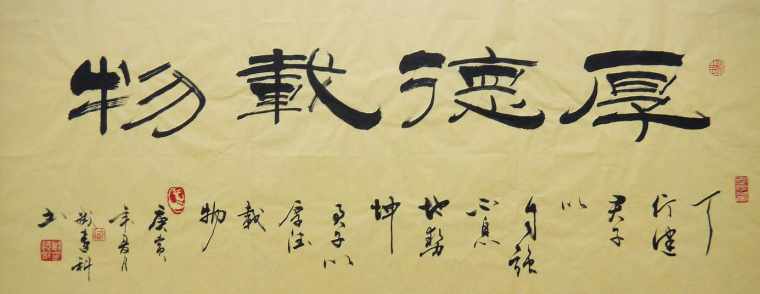 厚德載物
天
行健
君子
以
自強
不息
地勢
坤
君子以
厚德
載
物
庚寅
年月
科
书